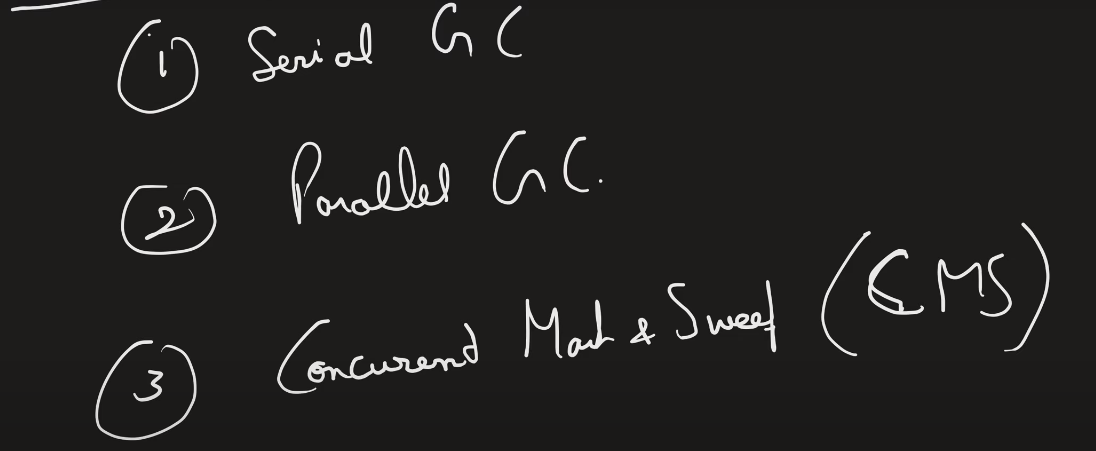 ① Serial GC
② Parallel GC.
③ Concurrend Mark & Sweep (CMS)